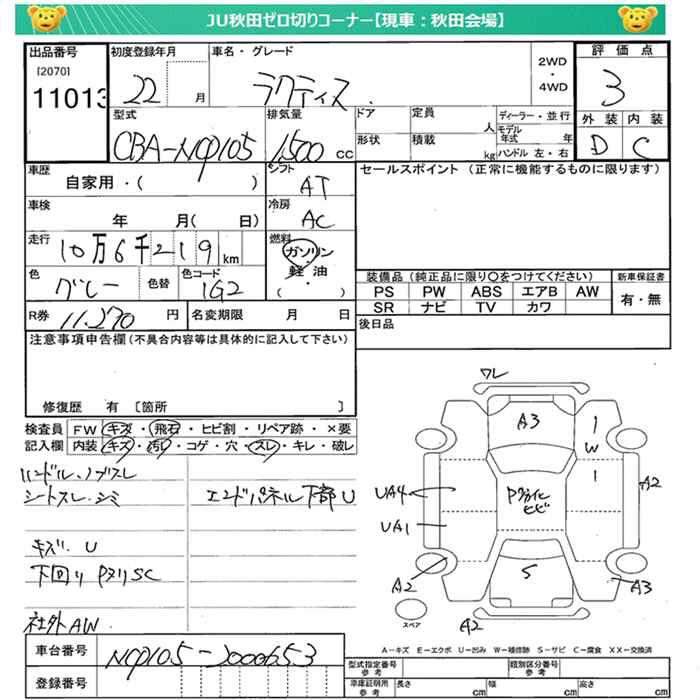 JU秋田ゼロ切りコーナー【現車：秋田会場】
出品番号
[2070]
11013
初度登録年月
22
月
車名・グレード
ラクティス
2WD
・
4WD
評価点
3
外装 内装
D C
型式
CBA-NCP105
排気量
1,500 cc
ドア
定員
人
形状
積載
kg
ディーラー・並行
モデル年式 年
ハンドル 左・右
車歴
自家用・( )
シフト
AT
セールスポイント (正常に機能するものに限ります)
車検
年 月( 日)
冷房
AC
走行
10万6千219 km
燃料
ガソリン
・
軽油
・
( )
色
グレー
色替
色コード
1G2
装備品 (純正品に限り○をつけてください)
新車保証書
PS PW ABS エアB AW
SR ナビ TV カワ
有・無
R券 11,270 円
名変期限 月 日
後日品
注意事項申告欄(不具合内容等は具体的に記入して下さい)
修復歴 有 [箇所 ]
検査員記入欄
FW キズ・飛石・ヒビ割・リペア跡・×要
内装 キズ・汚レ・コゲ・穴・スレ・キレ・破レ
ハンドル、ノブスレ
シートスレ・シミ
エンドパネル下部U
キズ、U
下回り PヌリSC
社外AW
ワレ
A3
W
A2
UA4
UA1
ヒビ
A2
S
A3
A2
スペア
A-キズ E-エクボ U-凹み W-補修跡 S-サビ C-腐食 XX-交換済
車台番号
NCP105-2000653
登録番号
型式指定番号
参考
類別区分番号
参考
車庫証明用
参考
長さ cm
幅 cm
高さ cm